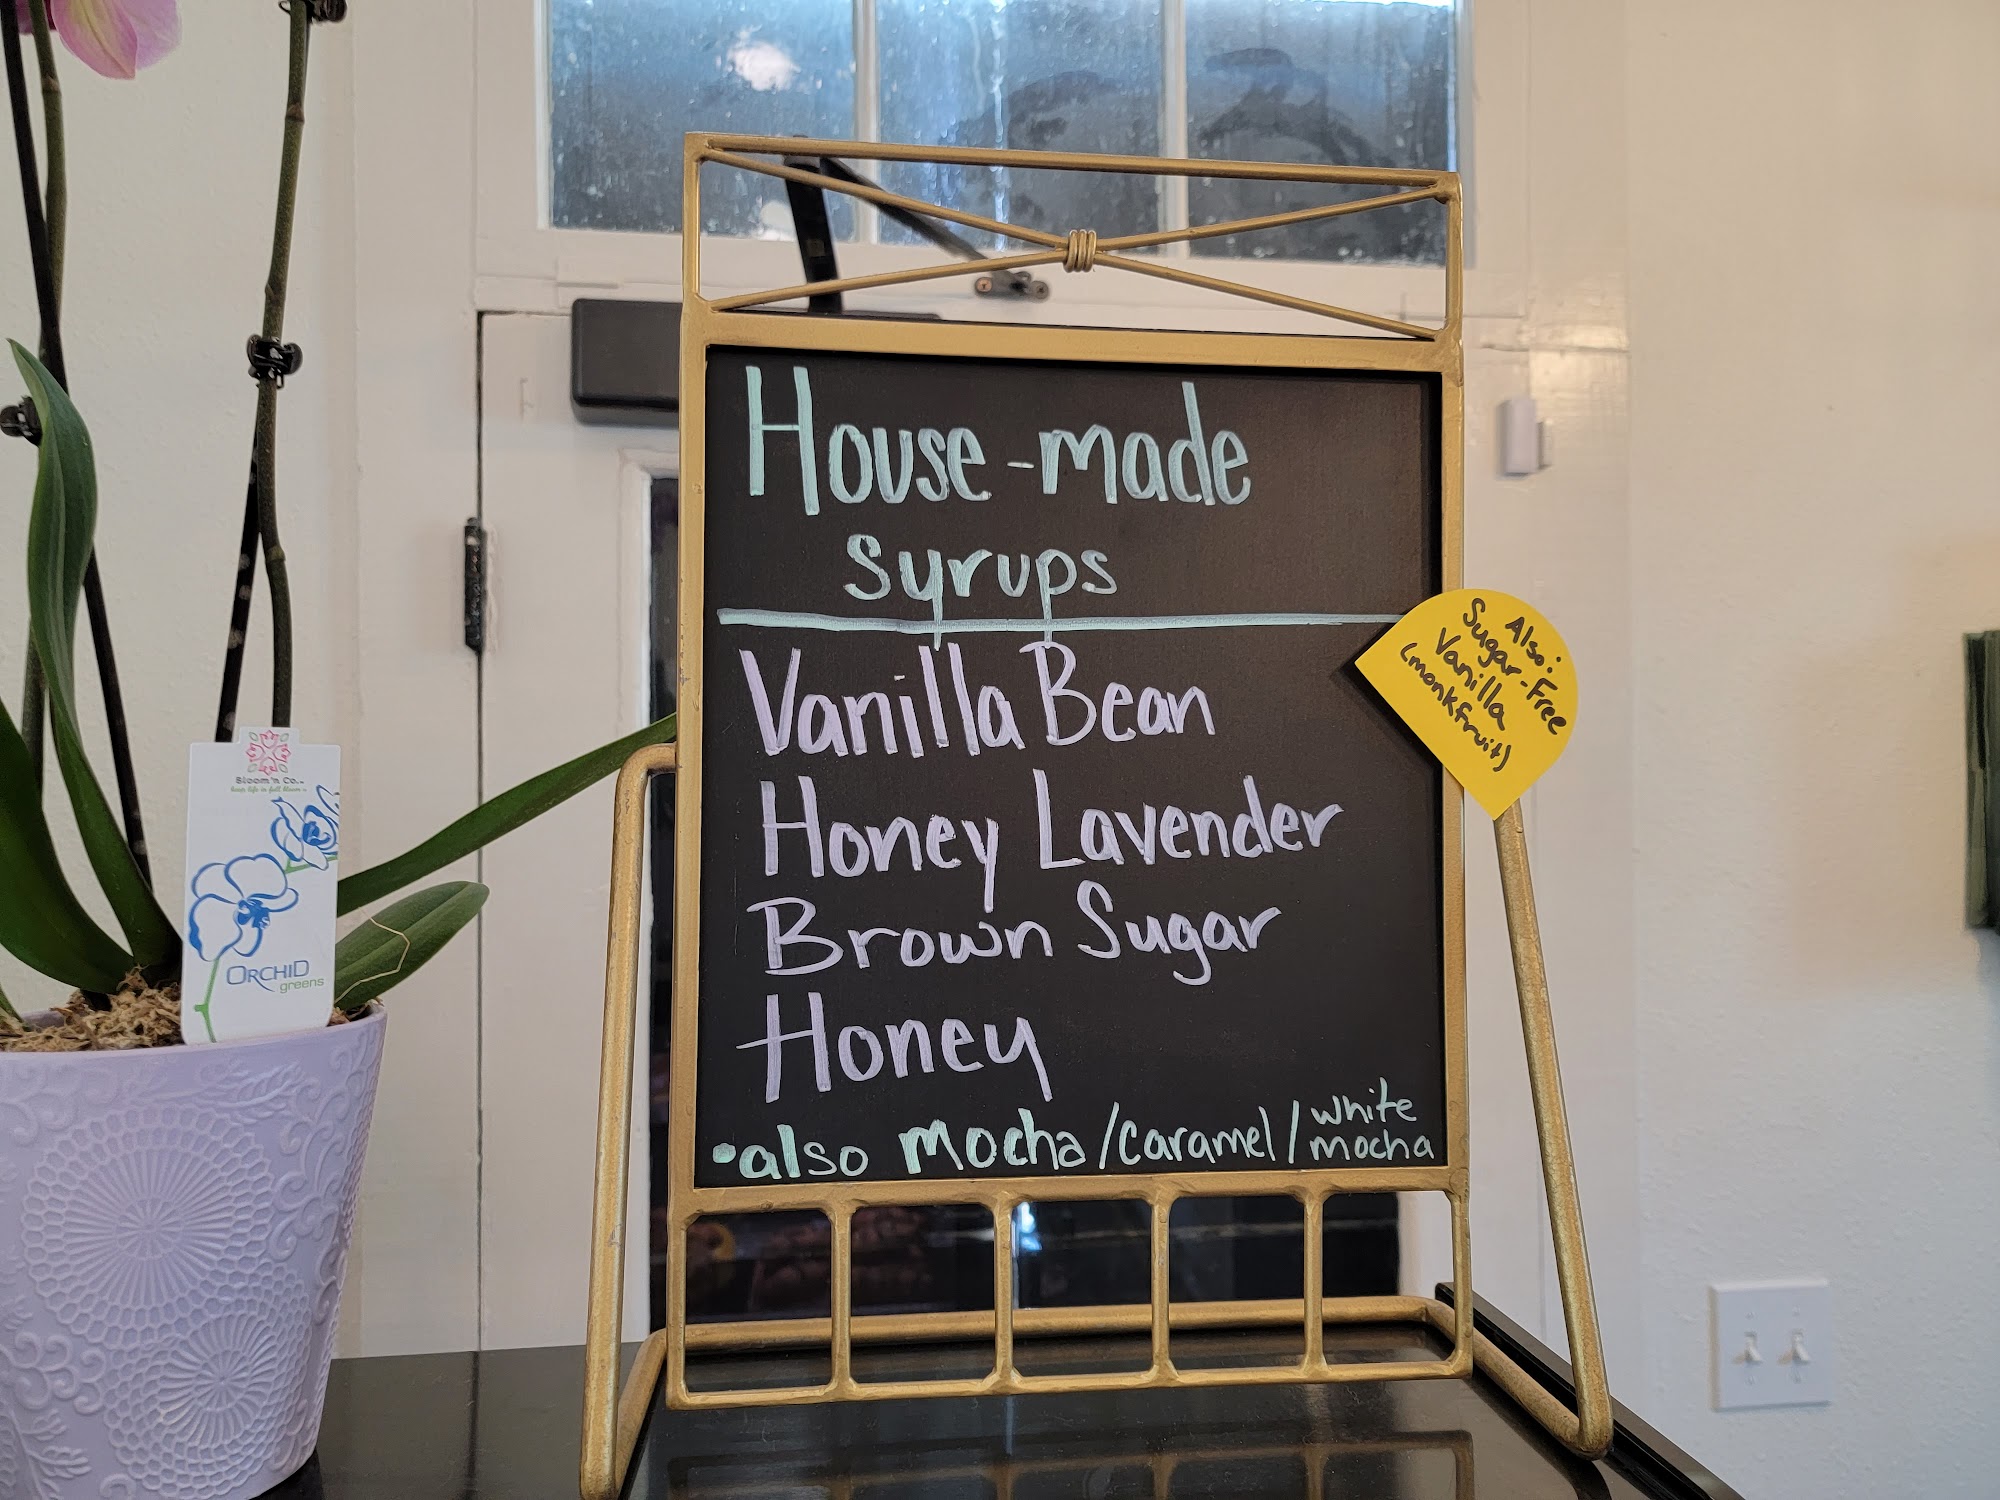 House-made
syrups
Vanilla Bean
Honey Lavender
Brown Sugar
Honey
•also Mocha/caramel/white mocha
Also:
Sugar-Free
Vanilla
(monkfruit)
Bloom'n Co.
keep life in full bloom
ORCHID
greens